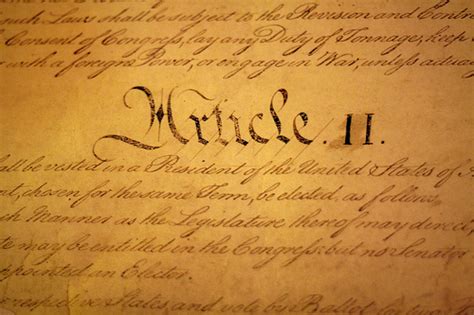 such Laws shall be subject to the Revision and Contro
Consent of Congress, lay any Duty of Tonnage, keep
with a foreign Power, or engage in War, unless actua
Article. II.
all be vested in a President of the United States of A
chosen for the same Term, be elected, as follows
ch Manner as the Legislature thereof may direct,
may be entitled in the Congress: but no Senator
ppointed an Elector.
respective States, and vote by Ballot for two